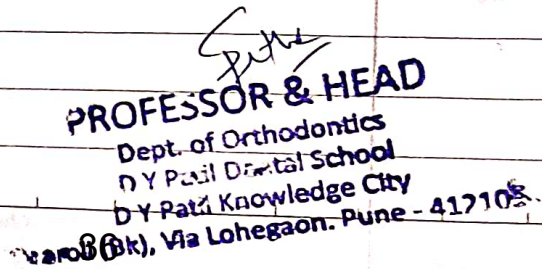 PROFESSOR & HEAD
Dept. of Orthodontics
D Y Patil Dental School
D Y Patil Knowledge City
(Bk), Via Lohegaon. Pune - 412105.
36